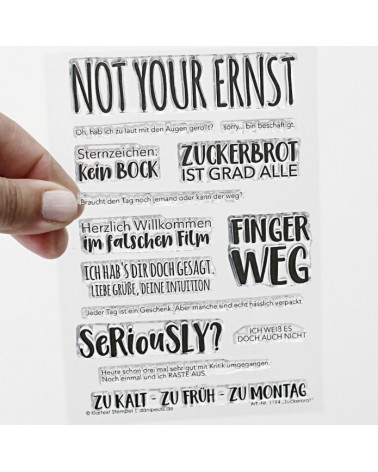 NOT YOUR ERNST
Oh, hab ich zu laut mit den Augen gerollt?
sorry... bin beschäftigt.
Sternzeichen:
Kein BOCK
ZUCKERBROT
IST GRAD ALLE
Braucht den Tag noch jemand oder kann der weg?
Herzlich Willkommen
im falschen Film
FINGER
WEG
ICH HAB'S DIR DOCH GESAGT.
LIEBE GRÜẞE, DEINE INTUITION
Jeder Tag ist ein Geschenk. Aber manche sind echt hässlich verpackt.
SeRiouSLY?
ICH WEIẞ ES
DOCH AUCH NICHT
Heute schon drei mal sehr gut mit Kritik umgegangen.
Noch einmal und ich RASTE AUS.
ZU KALT - ZU FRÜH - ZU MONTAG
© Klartext Stempel | danipeuss.de
Art.-Nr. 1194 „Zuckerbrot"